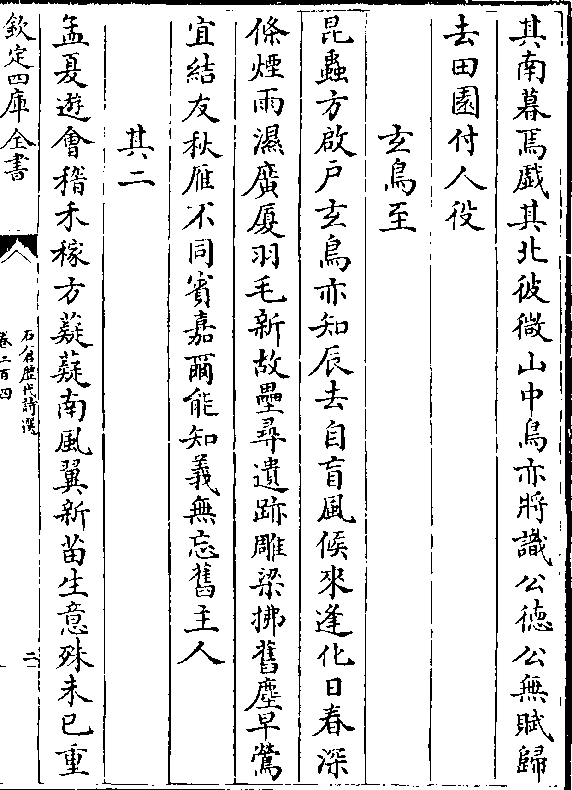 其南暮焉戯其北彼微山中鳥亦將識公徳公無賦歸
去田園付人役
玄鳥至
昆蟲方啟戸玄鳥亦知辰去自盲風候來逢化日春深
條煙雨濕廣厦羽毛新故壘尋遺跡雕梁拂舊塵早鶯
宜結友秋雁不同賓嘉爾能知義無忘舊主人
其二
孟夏遊會稽禾稼方薿薿南風翼新苗生意殊未已重
欽定四庫全書
石倉歴代詩選
卷二百四
二